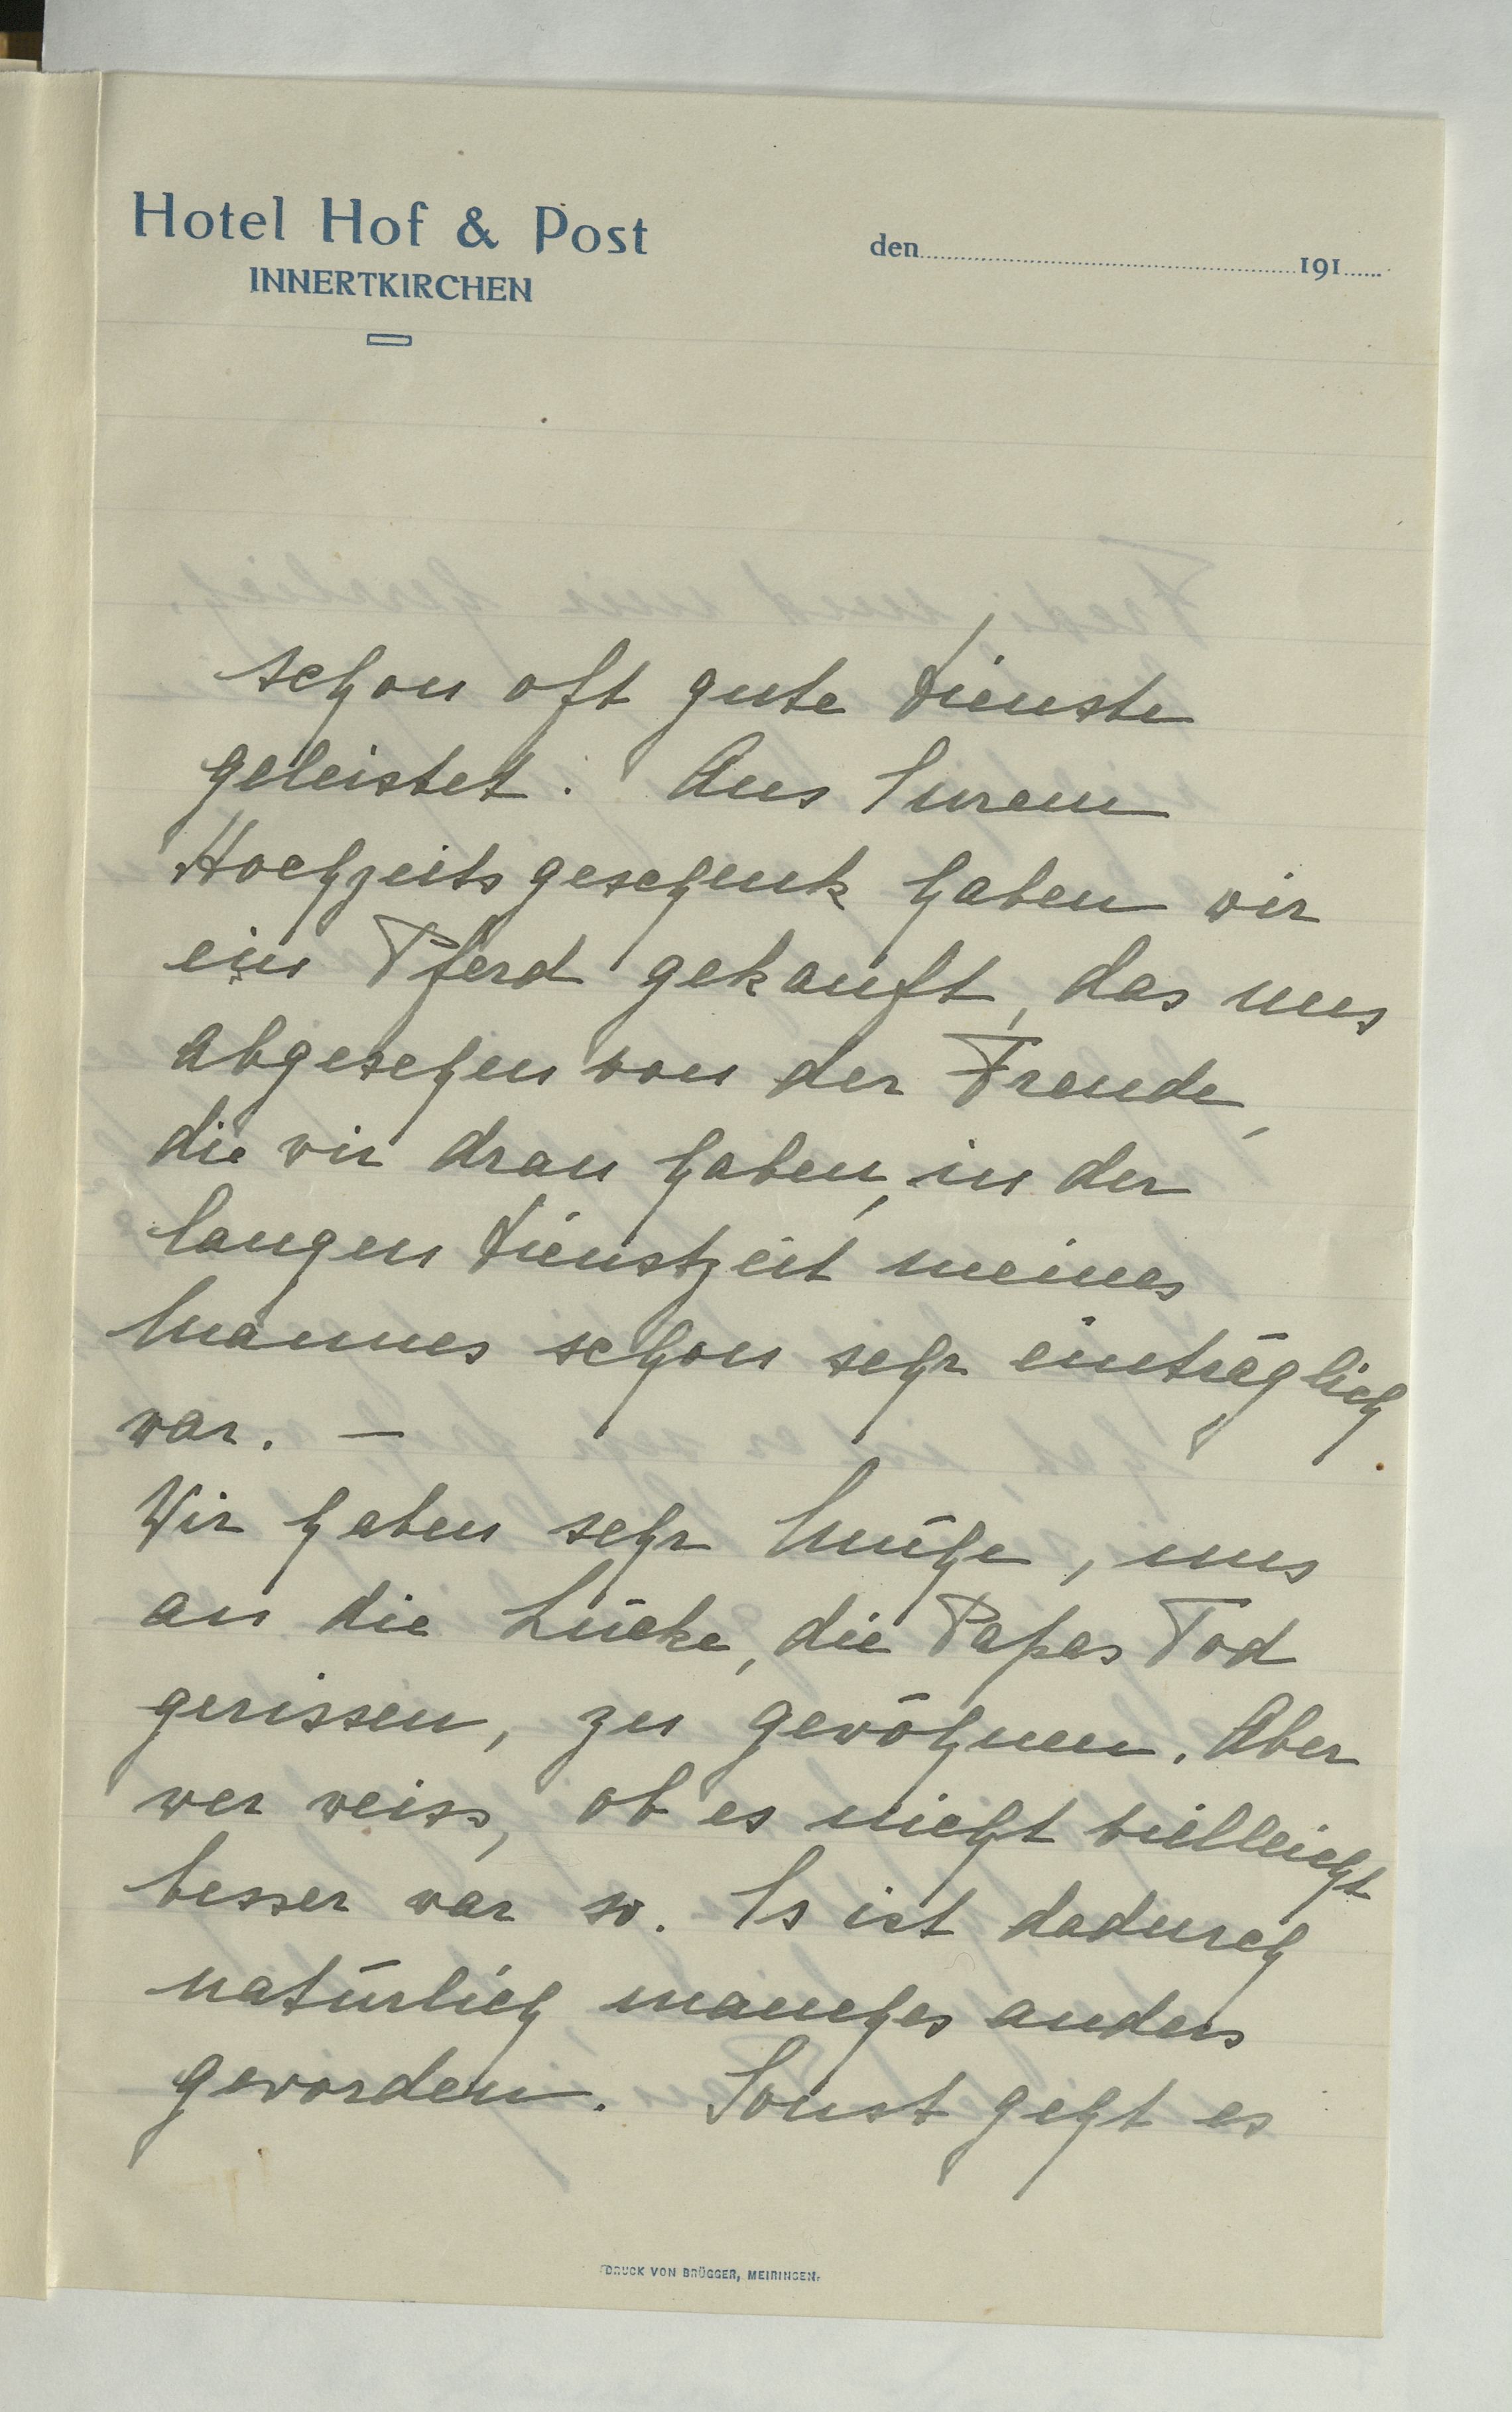 Hotel Hof & Post
INNERTKIRCHEN
den 191
schon oft gute Dienste
geleistet. Aus Eurem
Hochzeitsgeschenk haben wir
ein Pferd gekauft, das uns
abgesehen von der Freude,
die wir dran haben, in der
langen Dienstzeit meines
Mannes schon sehr einträglich
war. —
Wir haben sehr Mühe, uns
an die Lücke, die Papas Tod
gerissen, zu gewöhnen. Aber
wer weiss, ob es nicht vielleicht
besser war so. Es ist dadurch
natürlich manches anders
geworden. Sonst geht es
DRUCK VON BRÜGGER, MEIRINGEN.